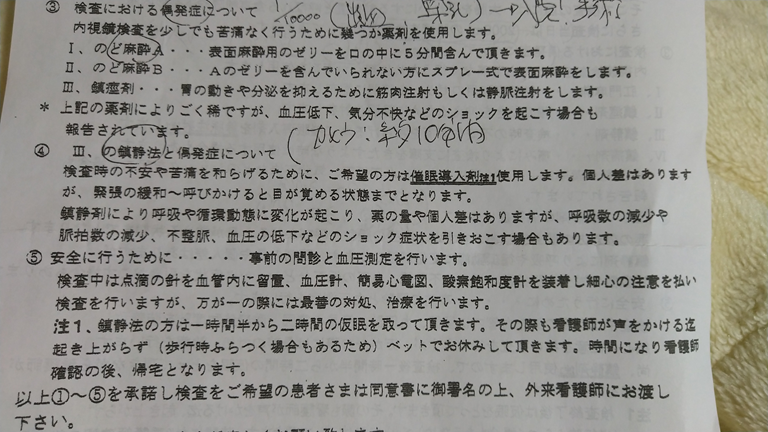 ③ 検査における偶発症について 1/10000
内視鏡検査を少しでも苦痛なく行うために幾つか薬剤を使用します。
Ⅰ、のど麻酔A・・・表面麻酔用のゼリーを口の中に5分間含んで頂きます。
Ⅱ、のど麻酔B・・・Aのゼリーを含んでいられない方にスプレー式で表面麻酔をします。
Ⅲ、鎮痙剤・・・胃の動きや分泌を抑えるために筋肉注射もしくは静脈注射をします。
* 上記の薬剤によりごく稀ですが、血圧低下、気分不快などのショックを起こす場合も
報告されています。
④ Ⅲ、の鎮静法と偶発症について
検査時の不安や苦痛を和らげるために、ご希望の方は催眠導入剤注1使用します。個人差はあります
が、緊張の緩和～呼びかけると目が覚める状態までとなります。
鎮静剤により呼吸や循環動態に変化が起こり、薬の量や個人差はありますが、呼吸数の減少や
脈拍数の減少、不整脈、血圧の低下などのショック症状を引きおこす場合もあります。
⑤ 安全に行うために・・・・・事前の問診と血圧測定を行います。
検査中は点滴の針を血管内に留置、血圧計、簡易心電図、酸素飽和度計を装着し細心の注意を払い
検査を行いますが、万が一の際には最善の対処、治療を行います。
注1、鎮静法の方は一時間半から二時間の仮眠を取って頂きます。その際も看護師が声をかける迄
起き上がらず（歩行時ふらつく場合もあるため）ベットでお休みして頂きます。時間になり看護師
確認の後、帰宅となります。
以上①～⑤を承諾し検査をご希望の患者さまは同意書に御署名の上、外来看護師にお渡し
下さい。